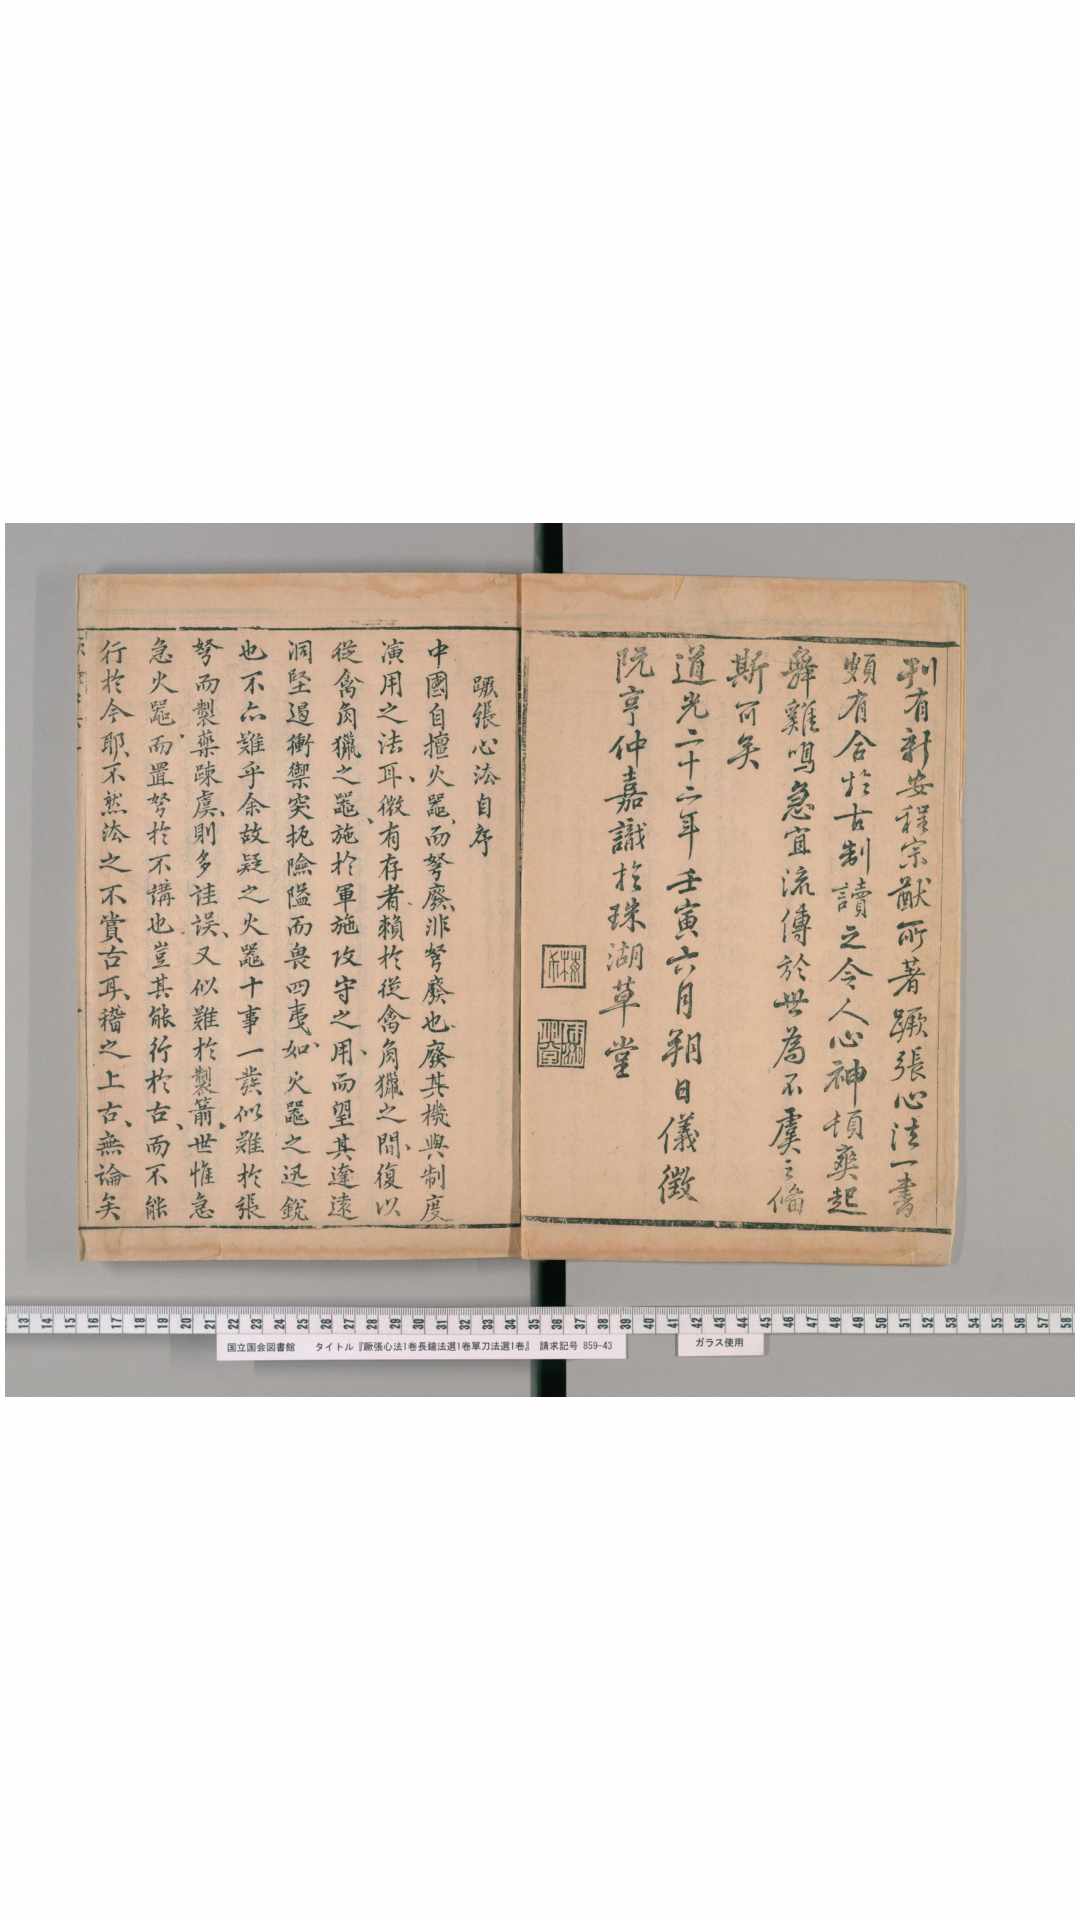 刋有新安程宗猷所著蹶張心法一書
頗有合於古制讀之令人心神頓爽起
舞雞鳴急宜流傳於世為不虞之備
斯可矣
道光二十二年壬寅六月朔日儀徵
阮亨仲嘉識於珠湖草堂
蹶張心法自序
中國自擅火噐而弩廢非弩廢也廢其機與制度
演用之法耳微有存者賴於從禽角獵之間復以
從禽角獵之噐施於軍施攻守之用而望其達遠
洞堅遏衝禦突扼險隘而畏四夷如火噐之迅銳
也不亦難乎余故疑之火噐十事一發似難於張
弩而製藥疎虞則多詿誤又似難於製箭世惟急
急火噐而置弩於不講也豈其能行於古而不能
行於今耶不然法之不嘗古耳稽之上古無論矣
13 14 15 16 17 18 19 20 21 22 23 24 25 26 27 28 29 30 31 32 33 34 35 36 37 38 39 40 41 42 43 44 45 46 47 48 49 50 51 52 53 54 55 56 57 58
国立国会図書館 タイトル『蹶張心法1巻長鎗法選1巻單刀法選1巻』 請求記号 859-43
ガラス使用